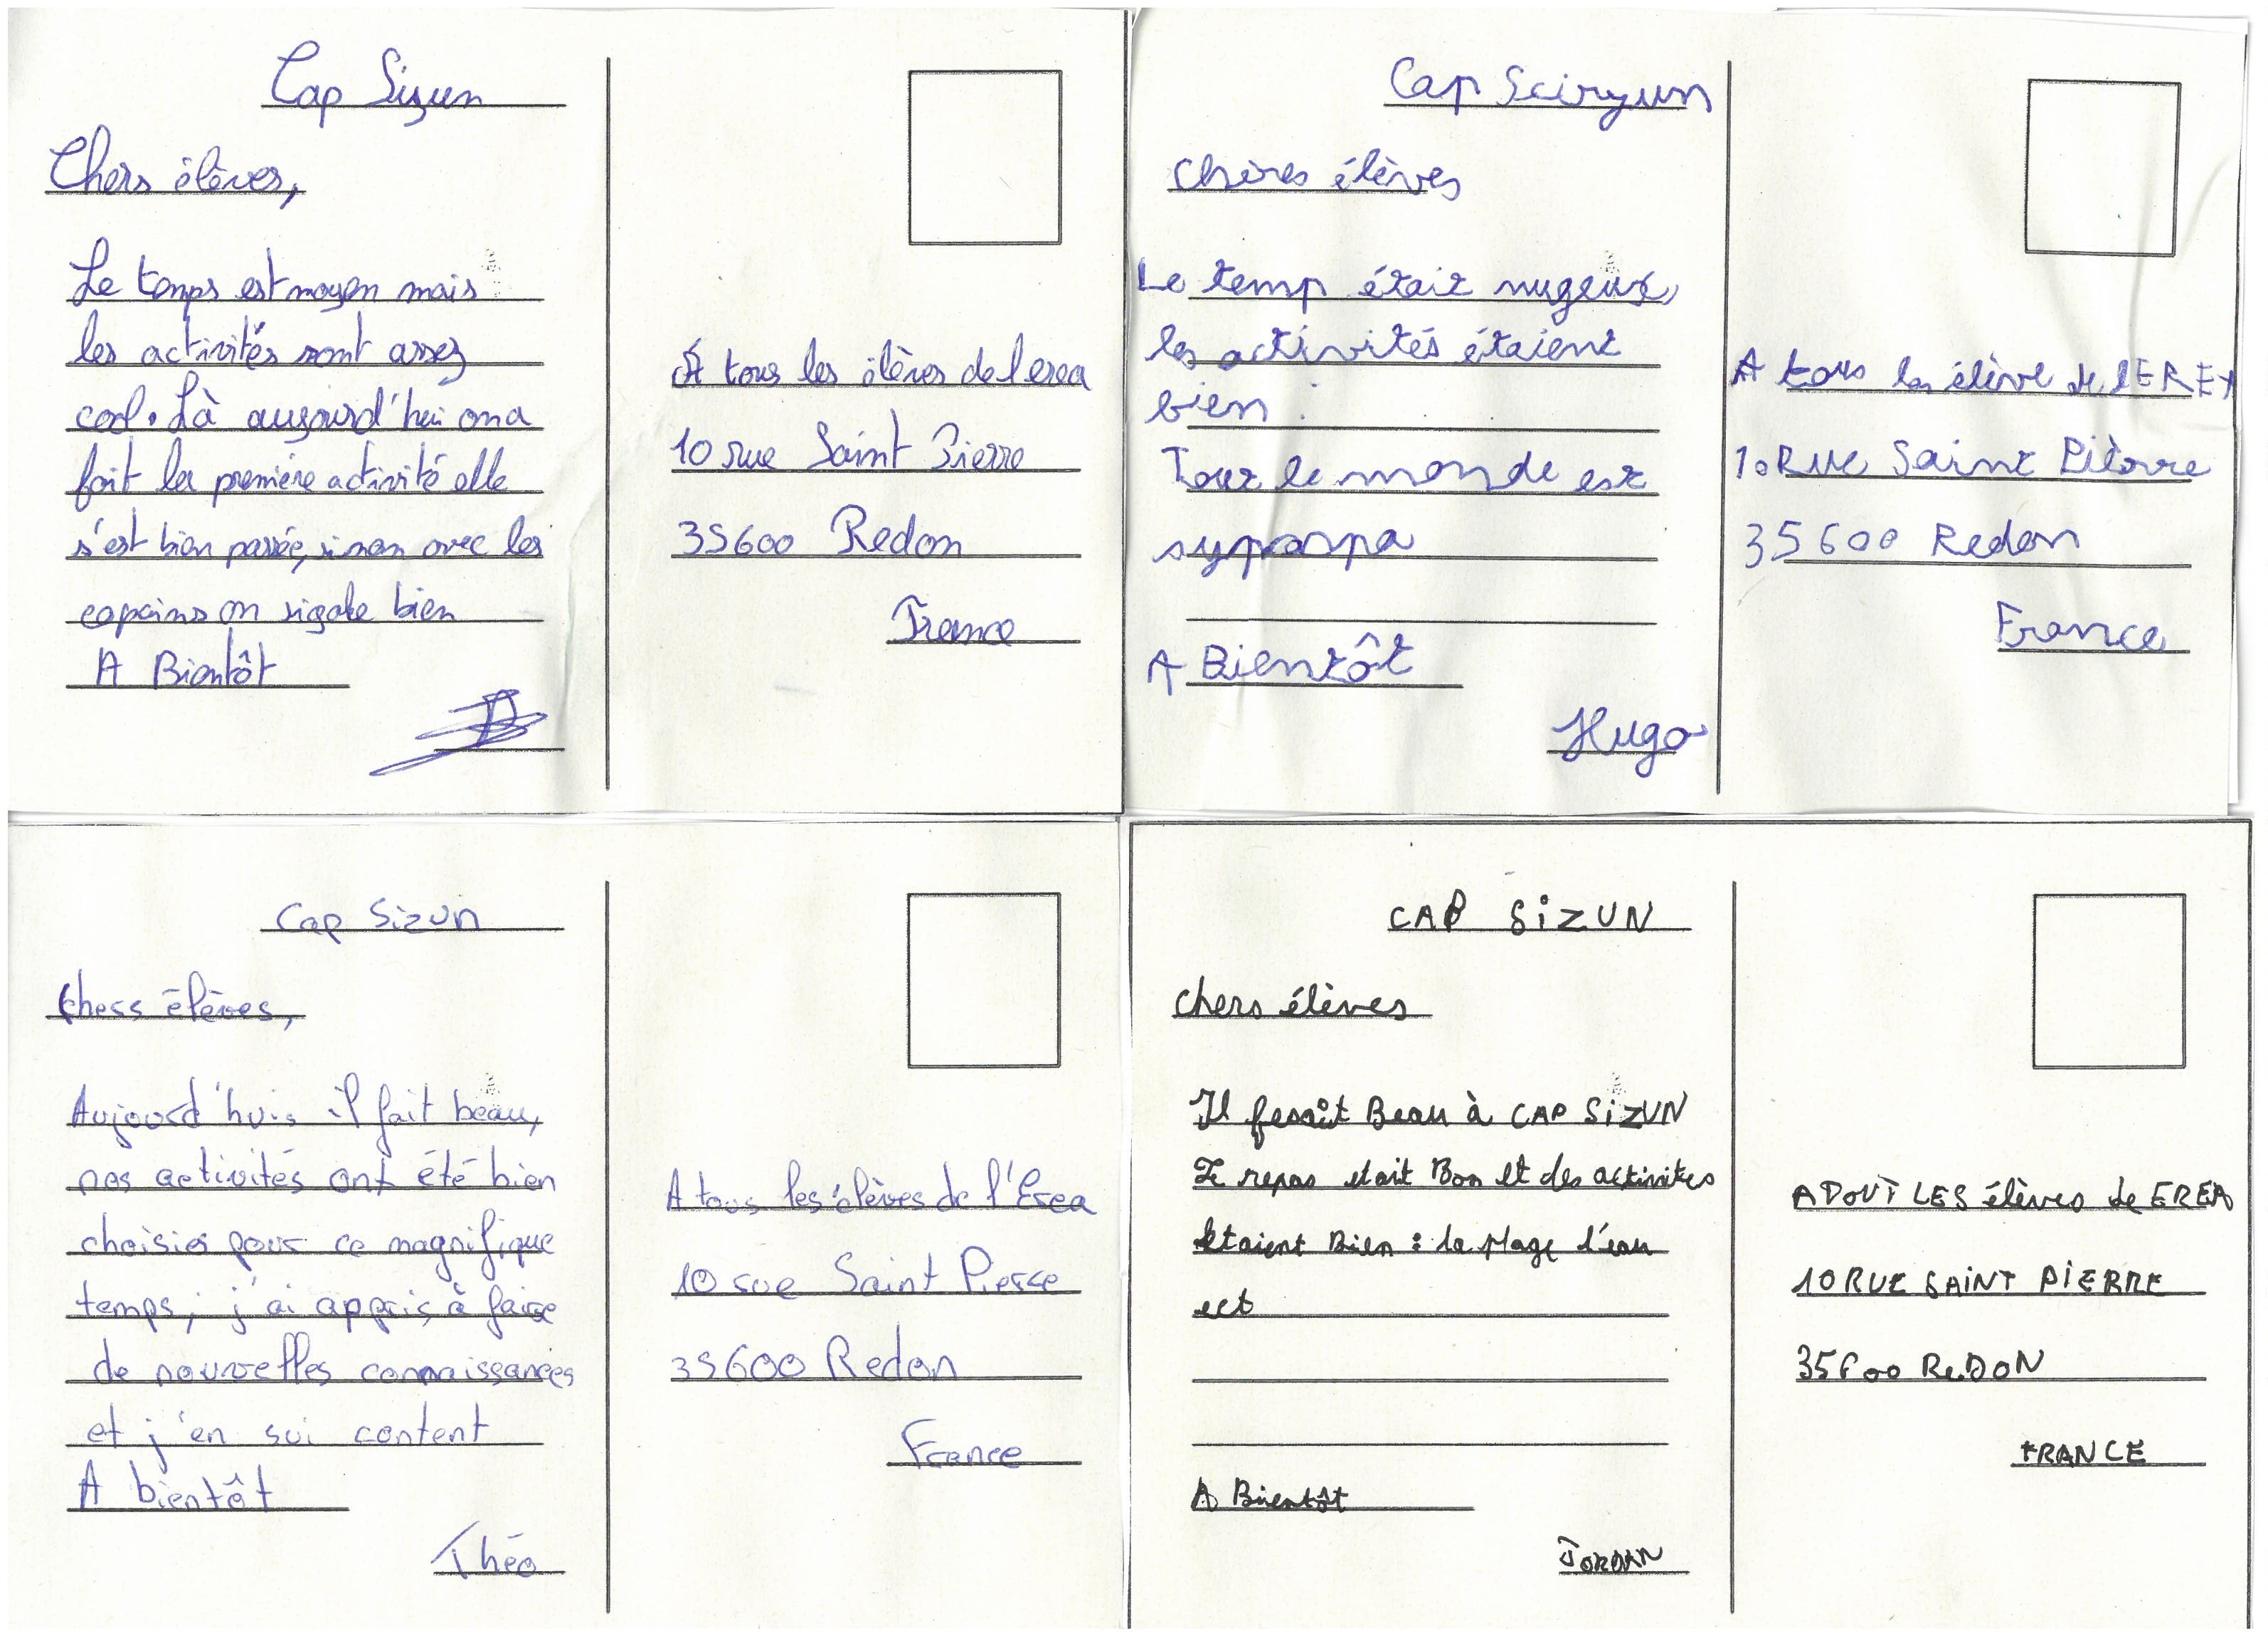 Cap Sizun
Chers élèves,
Le temps est moyen mais
les activités sont assez
cool. Là aujourd'hui on a
fait la première activité elle
s'est bien passée, sinon avec les
copains on rigole bien
A Bientôt
À tous les élèves de l'erea
10 rue Saint Pierre
35600 Redon
France
Cap Scizyun
chères élèves
Le temp était nugeux,
les activités étaient
bien.
Tout le monde est
sympaspa
A Bientôt
Hugo
A tous les élève de l'EREA
10 Rue Saint Pièrre
35600 Redon
France
Cap Sizun
Chers élèves,
Aujourd'huis il fait beau,
nos activités ont été bien
choisies pour ce magnifique
temps, j'ai appris à faire
de nouvelles connaissances
et j'en sui content
A bientôt
Théo
A tous les élèves de l'Erea
10 rue Saint Pierre
35600 Redon
France
CAP SiZUN
chers élèves
Il fesait Beau à CAP SiZUN
Le repas etait Bon et des activites
etaient Bien : la plage l'eau
ect
A Bientôt
JORDAN
A TOUT LES élèves de EREA
10 RUE SAiNT PiERRE
35600 ReDON
FRANCE